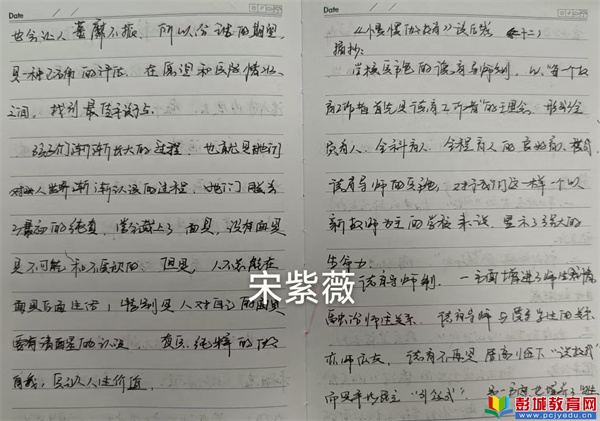 Date
也会让人萎靡不振，所以合适的期望
是一种已活的评价，在
之间，找到最佳平衡点。
孩子们渐渐长大的过程，也就是他们
对人世界渐渐认识的过程，他们脱去
了最初的纯真，学会戴上了面具，没有面具
是不可能和不受欢的，但是，人不能在
面具后面生活，特别是人对自己的面具
要有清醒的认识，
自我，人性价值
Date
《慢慢的教育》读后感（十二）
摘抄：
学校特色的德育导师制，以"每个教
育工作者首先是德育工作者"的理念，形成全
员育人、全科育人、全程育人的良好育人
德育导师的实施，对于我们这样一个以
新教师为主的学校来说，显示了强大的
生命力。
德育导师制，一方面增进了师生感情
师生关系，德育导师与学生的关系
亦师亦友，德育不再是居高临下"说教式"
而是平等民主"
宋紫薇
彭城教育网
www.pcjyedu.cn